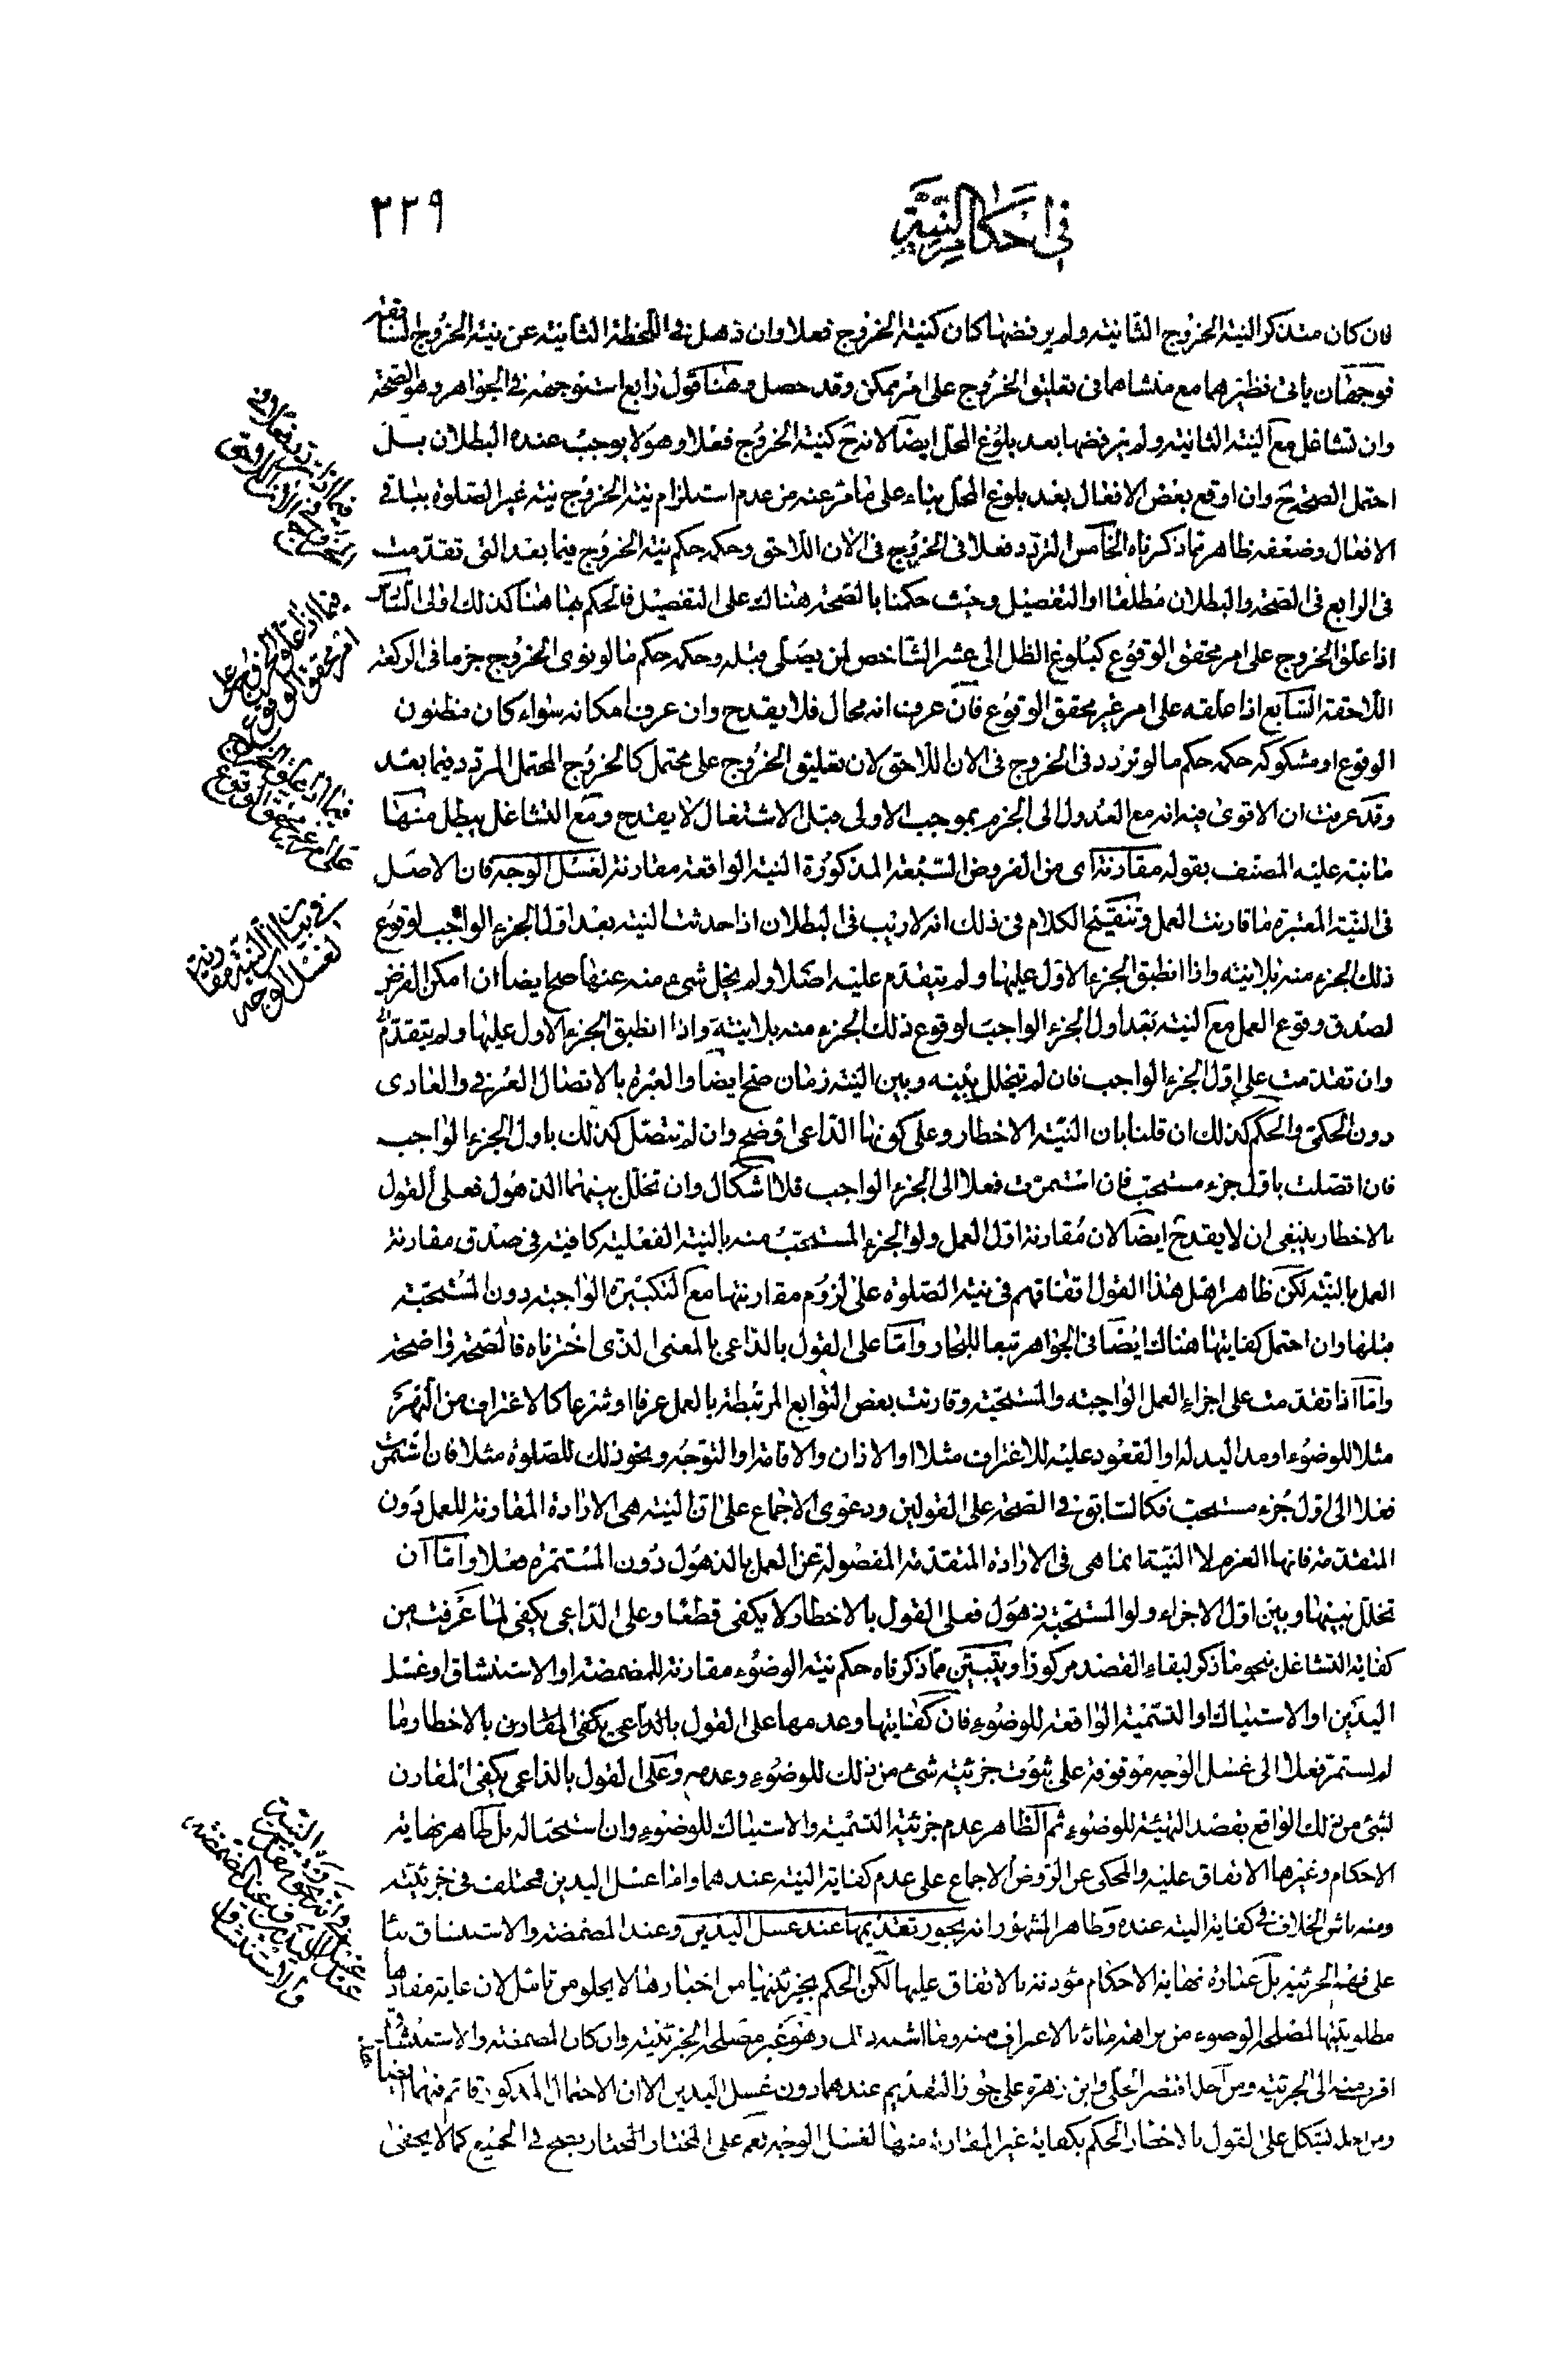 في احكام النية
٢٢٩
فان كان متذكرا لنية الخروج الثانية ولم يرفضها كان كنية الخروج فعلا وان ذهل في اللحظة الثانية عن نية الخروج السابقة
فوجهان يأتي نظيرهما مع منشاهما في تعليق الخروج على امر ممكن وقد حصل وهنا قول رابع استوجهه في الجواهر وهو الصحة
وان تشاغل مع النية الثانية ولم يرفضها بعد بلوغ المحل ايضا لاندح كنية الخروج فعلا وهو لا يوجب عنده البطلان بل
احتمل الصحة ح وان اوقع بعض الافعال بعد بلوغ المحل بناء على ما مر عنه من عدم استلزام نية الخروج نية غير الصلوة بباقي
الافعال وضعفه ظاهر مما ذكرناه الخامس التردد فعلا في الخروج في الان اللاحق وحكمه حكم نية الخروج فيما بعد التي تقدمت
في الرابع في الصحة والبطلان مطلقا او التفصيل وحيث حكمنا بالصحة هناك على التفصيل فالحكم بها هنا كذلك اولى السادس
اذا علق الخروج على امر محقق الوقوع كبلوغ الظل الى عشر الشاخص لمن يصلى قبله وحكمه حكم ما لو نوى الخروج جزما في الركعة
اللاحقة السابع اذا علقه على امر غير محقق الوقوع فان عرف انه محال فلا يقدح وان عرف امكانه سواء كان مظنون
الوقوع او مشكوكه حكمه حكم ما لو تردد في الخروج في الان اللاحق لان تعليق الخروج على محتمل كالخروج المحتمل المردد فيما بعد
وقد عرفت ان الاقوى فيه انه مع العدول الى الجزم بموجب الاولى قبل الاشتغال لا يقدح ومع التشاغل يبطل منها
ما نبه عليه المصنف بقوله مقارنة اى من الفروض السبعة المذكورة النية الواقعة مقارنة لغسل الوجه فان الاصل
في النية المعتبرة ما قارنت العمل وتنقيح الكلام في ذلك انه لا ريب في البطلان اذا حدثت النية بعد اول الجزء الواجب لوقوع
ذلك الجزء منه بلا نية واذا انطبق الجزء الاول عليها ولم يتقدم عليه اصلا ولم يخل شيء منه عنها صح ايضا ان امكن الفرض
لصدق وقوع العمل مع النية بعد اول الجزء الواجب لوقوع ذلك الجزء منه بلا نية واذا انطبق الجزء الاول عليها ولم يتقدم
وان تقدمت على اول الجزء الواجب فان لم يتخلل بينه وبين النية زمان صح ايضا والعبرة بالاتصال العرفي والعادي
دون الحكمي والحكم كذلك ان قلنا بان النية الاخطار وعلى كونها الداعي اوضح وان لم تتصل كذلك باول الجزء الواجب
فان اتصلت باول جزء مستحب فان استمرت فعلا الى الجزء الواجب فلا اشكال وان تخلل بينهما الذهول فعلى القول
بالاخطار ينبغي ان لا يقدح ايضا لان مقارنة اول العمل ولو الجزء المستحب منه بالنية الفعلية كافية في صدق مقارنة
العمل بالنية لكن ظاهر اهل هذا القول اتفاقهم في نية الصلوة على لزوم مقارنتها مع التكبيرة الواجبة دون المستحبة
قبلها وان احتمل كفايتها هناك ايضا في الجواهر تبعا للبحار واما على القول بالداعي بالمعنى الذى اخترناه فالصحة واضحة
واما اذا تقدمت على اجزاء العمل الواجبة والمستحبة وقارنت بعض التوابع المرتبطة بالعمل عرفا او شرعا كالاغتراف من النهر
مثلا للوضوء او مد اليد له او القعود عليه للاغتراف مثلا او الاذان والاقامة او التوجه ونحو ذلك للصلوة مثلا فان استمرت
فعلا الى اول جزء مستحب فكالسابق في الصحة على القولين ودعوى الاجماع على ان النية هي الارادة المقارنة للعمل دون
المتقدمة فانها العزم لا النية انما هي في الارادة المتقدمة المفصولة عن العمل بالذهول دون المستمرة فعلا واما ان
تخلل بينها وبين اول الاجزاء ولو المستحبة ذهول فعلى القول بالاخطار لا يكفي قطعا وعلى الداعي يكفي لما عرفت من
كفاية التشاغل بنحو ما ذكر لبقاء القصد مركوزا ويتبين مما ذكرناه حكم نية الوضوء مقارنة للمضمضة او الاستنشاق او غسل
اليدين او الاستياك او التسمية الواقعة للوضوء فان كفايتها وعدمها على القول بالداعي يكفي المقارن بالاخطار وما
لم يستمر فعلا الى غسل الوجه موقوفة على ثبوت جزئية شيء من ذلك للوضوء وعدمه وعلى القول بالداعي يكفي المقارن
لشيء من ذلك الواقع بقصد التهيئة للوضوء ثم الظاهر عدم جزئية التسمية والاستياك للوضوء وان استحبا له بل ظاهر نهاية
الاحكام وغيرها الاتفاق عليه والمحكي عن الروض الاجماع على عدم كفاية النية عندهما واما غسل اليدين فمختلف في جزئيته
ومنه ناش الخلاف في كفاية النية عنده وظاهر المشهور انه يجوز تقديمها عند غسل اليدين وعند المضمضة والاستنشاق بناء
على فهم الجزئية بل عبارة نهاية الاحكام مؤذنة بالاتفاق عليها لكن الحكم بجزئيتها من اخبارها لا يخلو من تامل لان غاية مفادها
مطلوبيتها لمصلحة الوضوء من وهو غير مصلحة الجزئية وان كان المضمضة والاستنشاق
اقرب منه الى الجزئية ومن اجله اقتصر الحلي وابن زهرة على جواز التقديم عندهما دون غسل اليدين الا ان الاحتمال المذكور قائم فيهما ايضا
ومن اجله يشكل على القول بالاخطار الحكم بكفاية غير المقارنة منها لغسل الوجه نعم على المختار المختار يصح في الجميع كما لا يخفى
فيما اذا تردد فعلا في الخروج في الان اللاحق
فيما اذا علق الخروج على امر محقق الوقوع
فيما اذا علق الخروج على امر غير محقق الوقوع
في بيان النية مقارنة لغسل الوجه
عند غسل اليدين وعند المضمضة والاستنشاق